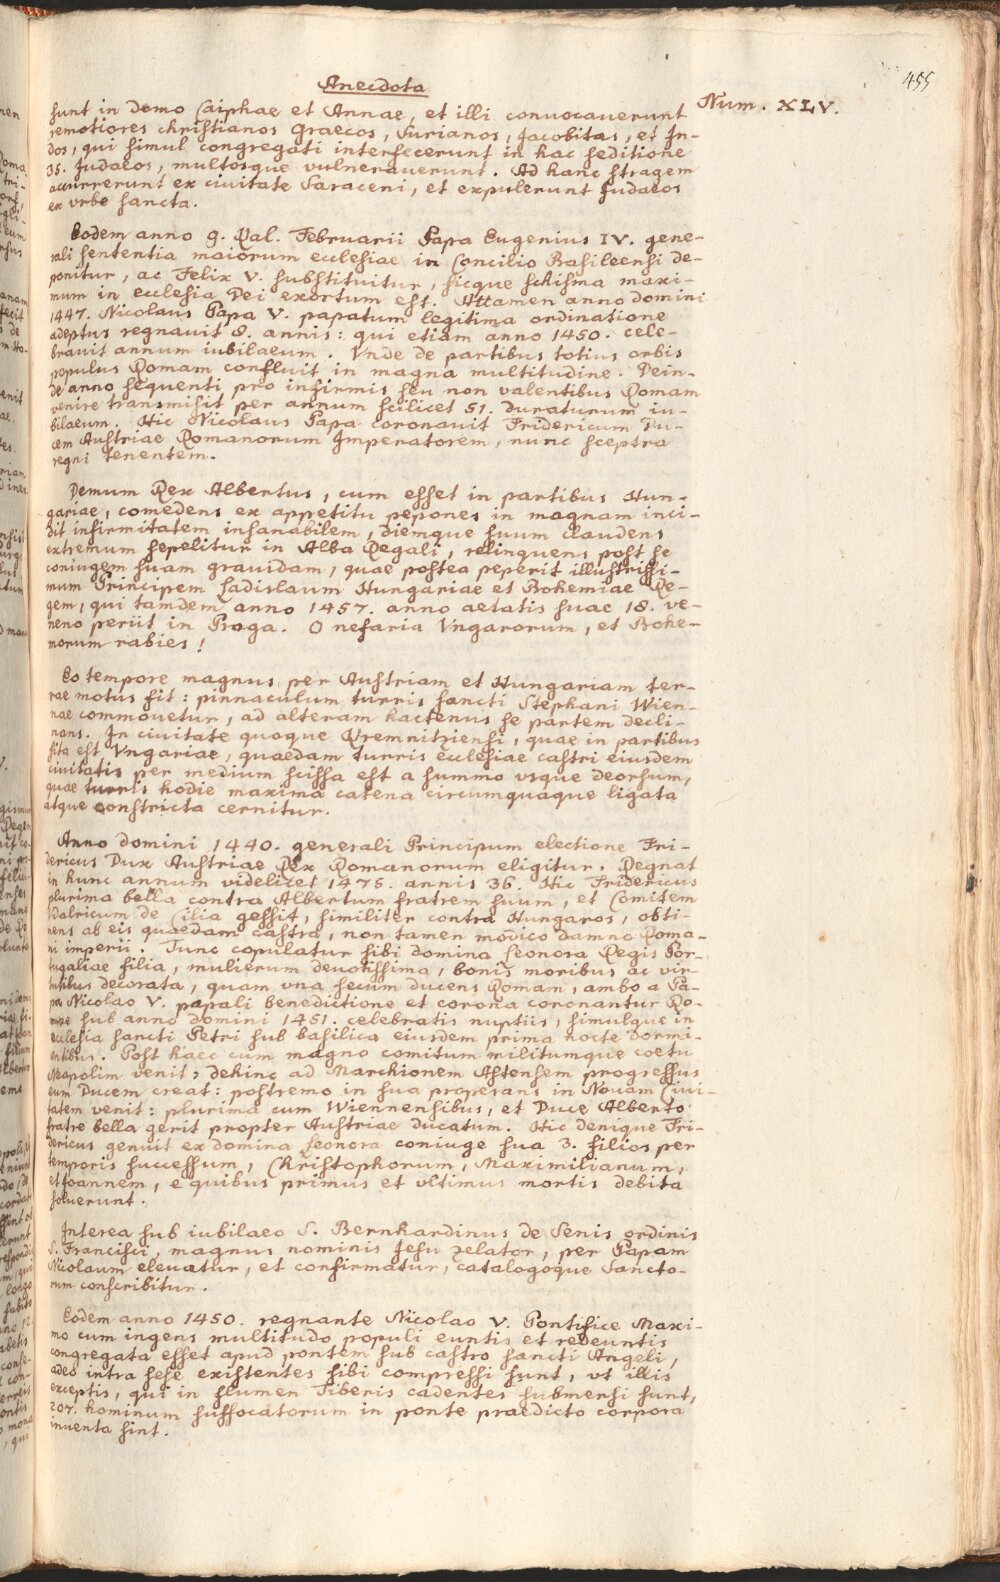 455
Anecdota
Num. XLV.
sunt in domo Caiphae et Annae, et illi convocaverunt
remotiores christianos Graecos, Surianos, Jacobitas, et In-
dos, qui simul congregati interfecerunt in hac seditione
35. Judaeos, multosque vulneraverunt. Ad hanc stragem
accurrerunt ex civitate Saraceni, et expulerunt Judaeos
ex vrbe sancta.
Eodem anno 9. Kal. Februarii Papa Eugenius IV. gene-
rali sententia maiorum ecclesiae in Concilio Basileensi de-
ponitur, ac Felix V. substituitur, sicque schisma maxi-
mum in ecclesia Dei exortum est. Attamen anno domini
1447. Nicolaus Papa V. papatum legitima ordinatione
adeptus regnauit 8. annis: qui etiam anno 1450. cele-
brauit annum iubilaeum. Vnde de partibus totius orbis
populus Romam confluit in magna multitudine. Dein-
de anno sequenti pro infirmis seu non valentibus Romam
venire transmisit per annum scilicet 51. duraturum iu-
bilaeum. Hic Nicolaus Papa coronauit Fridericum Du-
cem Austriae Romanorum Imperatorem, nunc sceptra
regni tenentem.
Demum Rex Albertus, cum esset in partibus Hun-
gariae, comedens ex appetitu pepones in magnam inci-
dit infirmitatem insanabilem, diemque suum claudens
extremum sepelitur in Alba Regali, relinquens post se
coniugem suam grauidam, quae postea peperit illustrissi-
mum Principem Ladislaum Hungariae et Bohemiae Re-
gem, qui tamdem anno 1457. anno aetatis suae 18. ve-
neno periit in Praga. O nefaria Vngarorum, et Bohe-
morum rabies!
Eo tempore magnus per Austriam et Hungariam ter-
rae motus fit: pinnaculum turris sancti Stephani Wien-
nae commouetur, ad alteram hactenus se partem decli-
nans. In ciuitate quoque Kremnitziensi, quae in partibus
sita est Vngariae, quaedam turris ecclesiae castri eiusdem
ciuitatis per medium scissa est a summo vsque deorsum,
quae turris hodie maxima catena circumquaque ligata
atque constricta cernitur.
Anno domini 1440. generali Principum electione Fri-
dericus Dux Austriae Rex Romanorum eligitur. Regnat
in hunc annum videlicet 1475. annis 36. Hic Fridericus
plurima bella contra Albertum fratrem suum, et Comitem
Vdalricum de Cilia gessit, similiter contra Hungaros, obti-
nens ab eis quaedam castra, non tamen modico damno Roma-
ni imperii. Tunc copulatur sibi domina Leonora Regis Por-
tugaliae filia, mulierum deuotissima, bonis moribus ac vir-
tutibus decorata, quam vna secum ducens Romam, ambo a Pa-
pa Nicolao V. papali benedictione et corona coronantur Ro-
mae sub anno domini 1451. celebratis nuptiis, simulque in
ecclesia sancti Petri sub basilica eiusdem prima nocte dormi-
entibus. Post haec cum magno comitum militumque coetu
Neapolim venit; dehinc ad Marchionem Astensem progressus
eum Ducem creat: postremo in sua properans in Nouam Ciui-
tatem venit: plurima cum Wiennensibus, et Duce Alberto
fratre bella gerit propter Austriae ducatum. Hic denique Fri-
dericus genuit ex domina Leonora coniuge sua 3. filios per
temporis successum, Christophorum, Maximilianum,
et Joannem, e quibus primus et vltimus mortis debita
soluerunt.
Interea sub iubilaeo S. Bernhardinus de Senis ordinis
S. Francisci, magnus nominis Jesu zelator, per Papam
Nicolaum eleuatur, et confirmatur, catalogoque Sancto-
rum conscribitur.
Eodem anno 1450. regnante Nicolao V. Pontifice Maxi-
mo cum ingens multitudo populi euntis et redeuntis
congregata esset apud pontem sub castro sancti Angeli,
adeo intra sese existentes sibi compressi sunt, vt illis
exceptis, qui in flumen Tiberis cadentes submersi sunt,
207. hominum suffocatorum in ponte praedicto corpora
inventa sint.